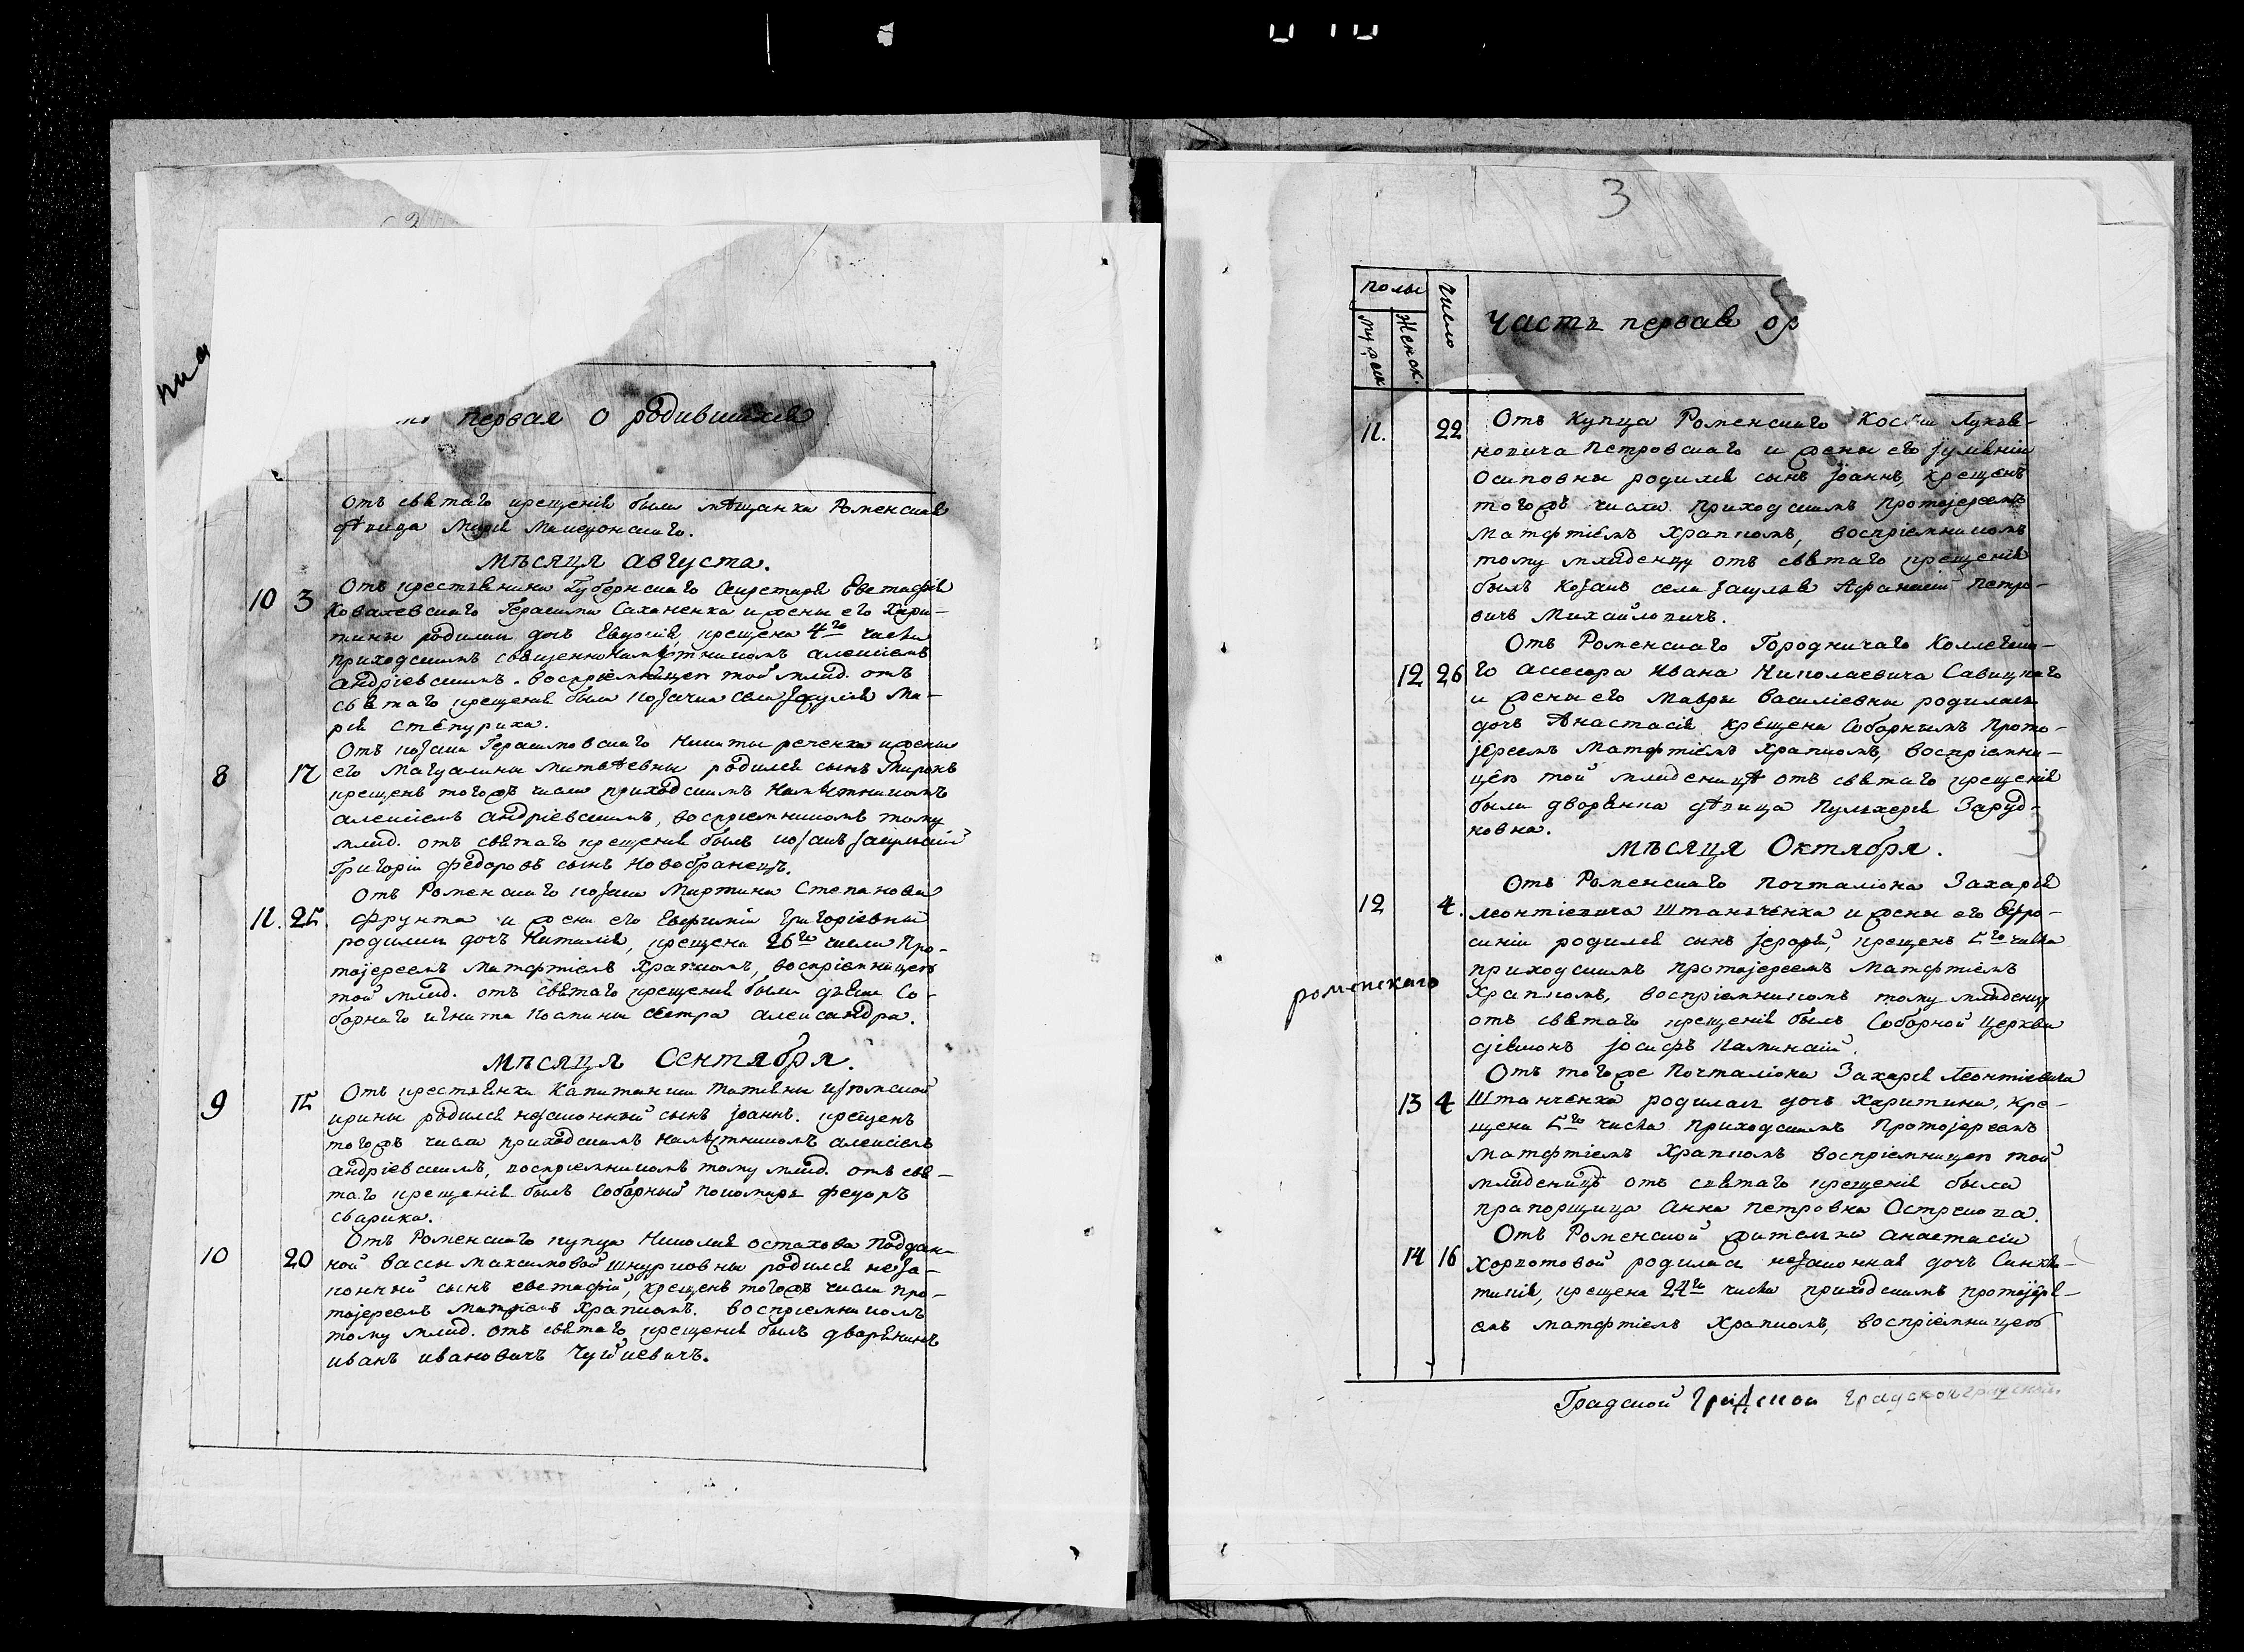 первая о родившихся
Отъ святаго крещенія была мѣщанка Роменская
дѣвица Марія Манцонскаго.
мѣсяца августа.
10 3 Отъ крестянина Губернскаго Секретаря Евстафія
Ковалевскаго Герасима Саханенка и жены его Хари-
тины родилась дочь Евдокія, крещена 4го числа
приходскимъ священнонамѣстникомъ алексіемъ
андріевскимъ. воспріемницею той млад. отъ
святаго крещенія была козачка села Засулья Ма-
рія степуриха.
Отъ козака Герасимовскаго Никиты реченка и жены
8 17 его Магдалины матвѣевны родился сынъ Миронъ
крещенъ тогожъ числа приходскимъ Намѣстникомъ
алексіемъ андріевскимъ, воспріемникомъ тому
млад. отъ святаго крещенія былъ козакъ засульскій
Григорій федоровъ сынъ Новобранецъ.
Отъ Роменскаго козака Мартина Степанова
11. 25 фрунта и жены его Евфиміи григоріевны
родилась дочь Наталія, крещена 26го числа Про-
тоіереемъ Матфтіемъ Храпкомъ, воспріемницею
той млад. отъ святаго крещенія была дьяка Со-
борнаго игната костины сестра александра.
Мѣсяца Сентября.
9 15 Отъ крестянки Капитанши татяны изюмской
ирины родился незаконный сынъ іоаннъ. крещенъ
тогожъ числа приходскимъ намѣстникомъ алексіемъ
андріевскимъ, воспріемникомъ тому млад. отъ свя-
таго крещенія былъ соборный пономарь федоръ
сварика.
Отъ Роменскаго купца Николая остахова поддан-
10 20 ной васы максимовой шнурковны родился неза-
конный сынъ евстафій, крещенъ тогожъ числа про-
тоіереемъ матфіемъ храпкомъ. воспріемникомъ
тому млад. отъ святаго крещенія былъ дворянинъ
иванъ ивановичъ Чуйкевичъ.
3
полы число
мужск Женск.
часть первая
11. 22 Отъ Купца Роменскаго Лукья-
новича Петровскаго и жены его іуліаніи
Осиповны родился сынъ іоаннъ, крещенъ
тогожъ числа приходскимъ протоіереемъ
Матфтіемъ Храпкомъ, воспріемникомъ
тому младенцу отъ святаго крещенія
былъ козакъ села засулья Афанасій Петро-
вичъ Михайловичъ.
Отъ Роменскаго Городничаго Коллегска-
12 26 го асесора Ивана Николаевича Савицкаго
и жены его мавры василіевны родилась
дочь Анастасія крещена Соборнымъ прото-
іереемъ Матфтіемъ храпкомъ, воспріемни-
цею той младеницѣ отъ святаго крещенія
была дворянка дѣвица Пульхерія Заруд-
новна.
мѣсяца Октября.
Отъ Роменскаго почталіона Захарія
12 4. леонтіевича Штанченка и жены его Ефро-
синіи родился сынъ іерофей, крещенъ 5го числа
приходскимъ протоіереемъ Матфтіемъ
роменскаго Храпкомъ, воспріемникомъ тому младенцу
отъ святаго крещенія былъ Соборной Церкви
діяконъ іосифъ Каминскій.
Отъ тогоже Почталіона Захарія Леонтіевича
13 4 Штанченка родилась дочь харитина, кре-
щена 5го числа приходскимъ протоіереемъ
матфтіемъ Храпкомъ воспріемницею той
младеницѣ отъ святаго крещенія была
прапорщица Анна петровна Острекова.
Отъ Роменской жителки анастасіи
14 16 хорпотовой родилась незаконная дочь Синкли-
тикія, крещена 24го числа приходскимъ протоіере-
емъ матфтіемъ храпкомъ, воспріемницею
Градской Градской градской градской